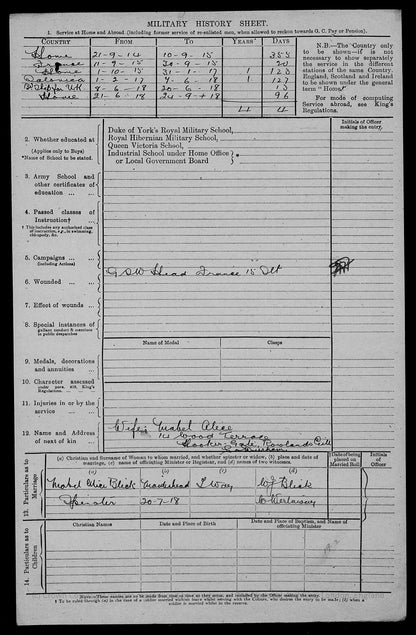 MILITARY HISTORY SHEET.
1. Service at Home and Abroad (including former service of re-enlisted men, when allowed to reckon towards G. C. Pay or Pension).
COUNTRY From To YEARS DAYS
Home 21-9-14 10-9-15 355
France 11-9-15 30-9-15 20
Home 1-10-15 31-1-17 1 123
Salonica 1-2-17 7-6-18 1 127
8-6-18 20-6-18 13
Home 21-6-18 24-9-18 96
N.B.—The Country only
to be shown—if is not
necessary to show separately
the service in the different
stations of the same Country.
England, Scotland and Ireland
to be shown under the general
term "Home"
For mode of computing
Service abroad, see King's
Regulations.
Initials of Officer
making the entry.
2. Whether educated at
(Applies only to Boys)
*Name of School to be stated.
Duke of York's Royal Military School,
Royal Hibernian Military School,
Queen Victoria School,
Industrial School under Home Office
or Local Government Board
3. Army School and
other certificates of
education
4. Passed classes of
Instruction†
† This includes any authorised class
of instruction, e.g., in swimming,
chiropody, &c.
5. Campaigns
(including Actions)
GSW Head France 15 Oct
6. Wounded
7. Effect of wounds
8. Special instances of
gallant conduct & mentions
in public despatches
Name of Medal Clasps
9. Medals, decorations
and annuities
10. Character assessed
under para. King's
Regulations
11. Injuries in or by the
service
12. Name and Address
of next of kin
Wife: Mabel Alice
14 Wood Terrace
Hooker Gate, Rowlands Gill
13. Particulars as to
Marriage.
(a) Christian and Surname of Woman to whom married, and whether spinster or widow, (b) place and date of
marriage, (c) name of officiating Minister or Registrar, and (d) names of two witnesses.
Date of being
placed on
Married Roll
Initials
of
Officer
(a) (b) (c) (d)
Mabel Alice Black Maidenhead
Spinster 20-7-18
14. Particulars as to
Children
Christian Name Date and Place of Birth Date and Place of Baptism, and Name of
officiating Minister
NOTE.—These entries are to be made from time to time as they occur, and initialed by the Officer making the entry.